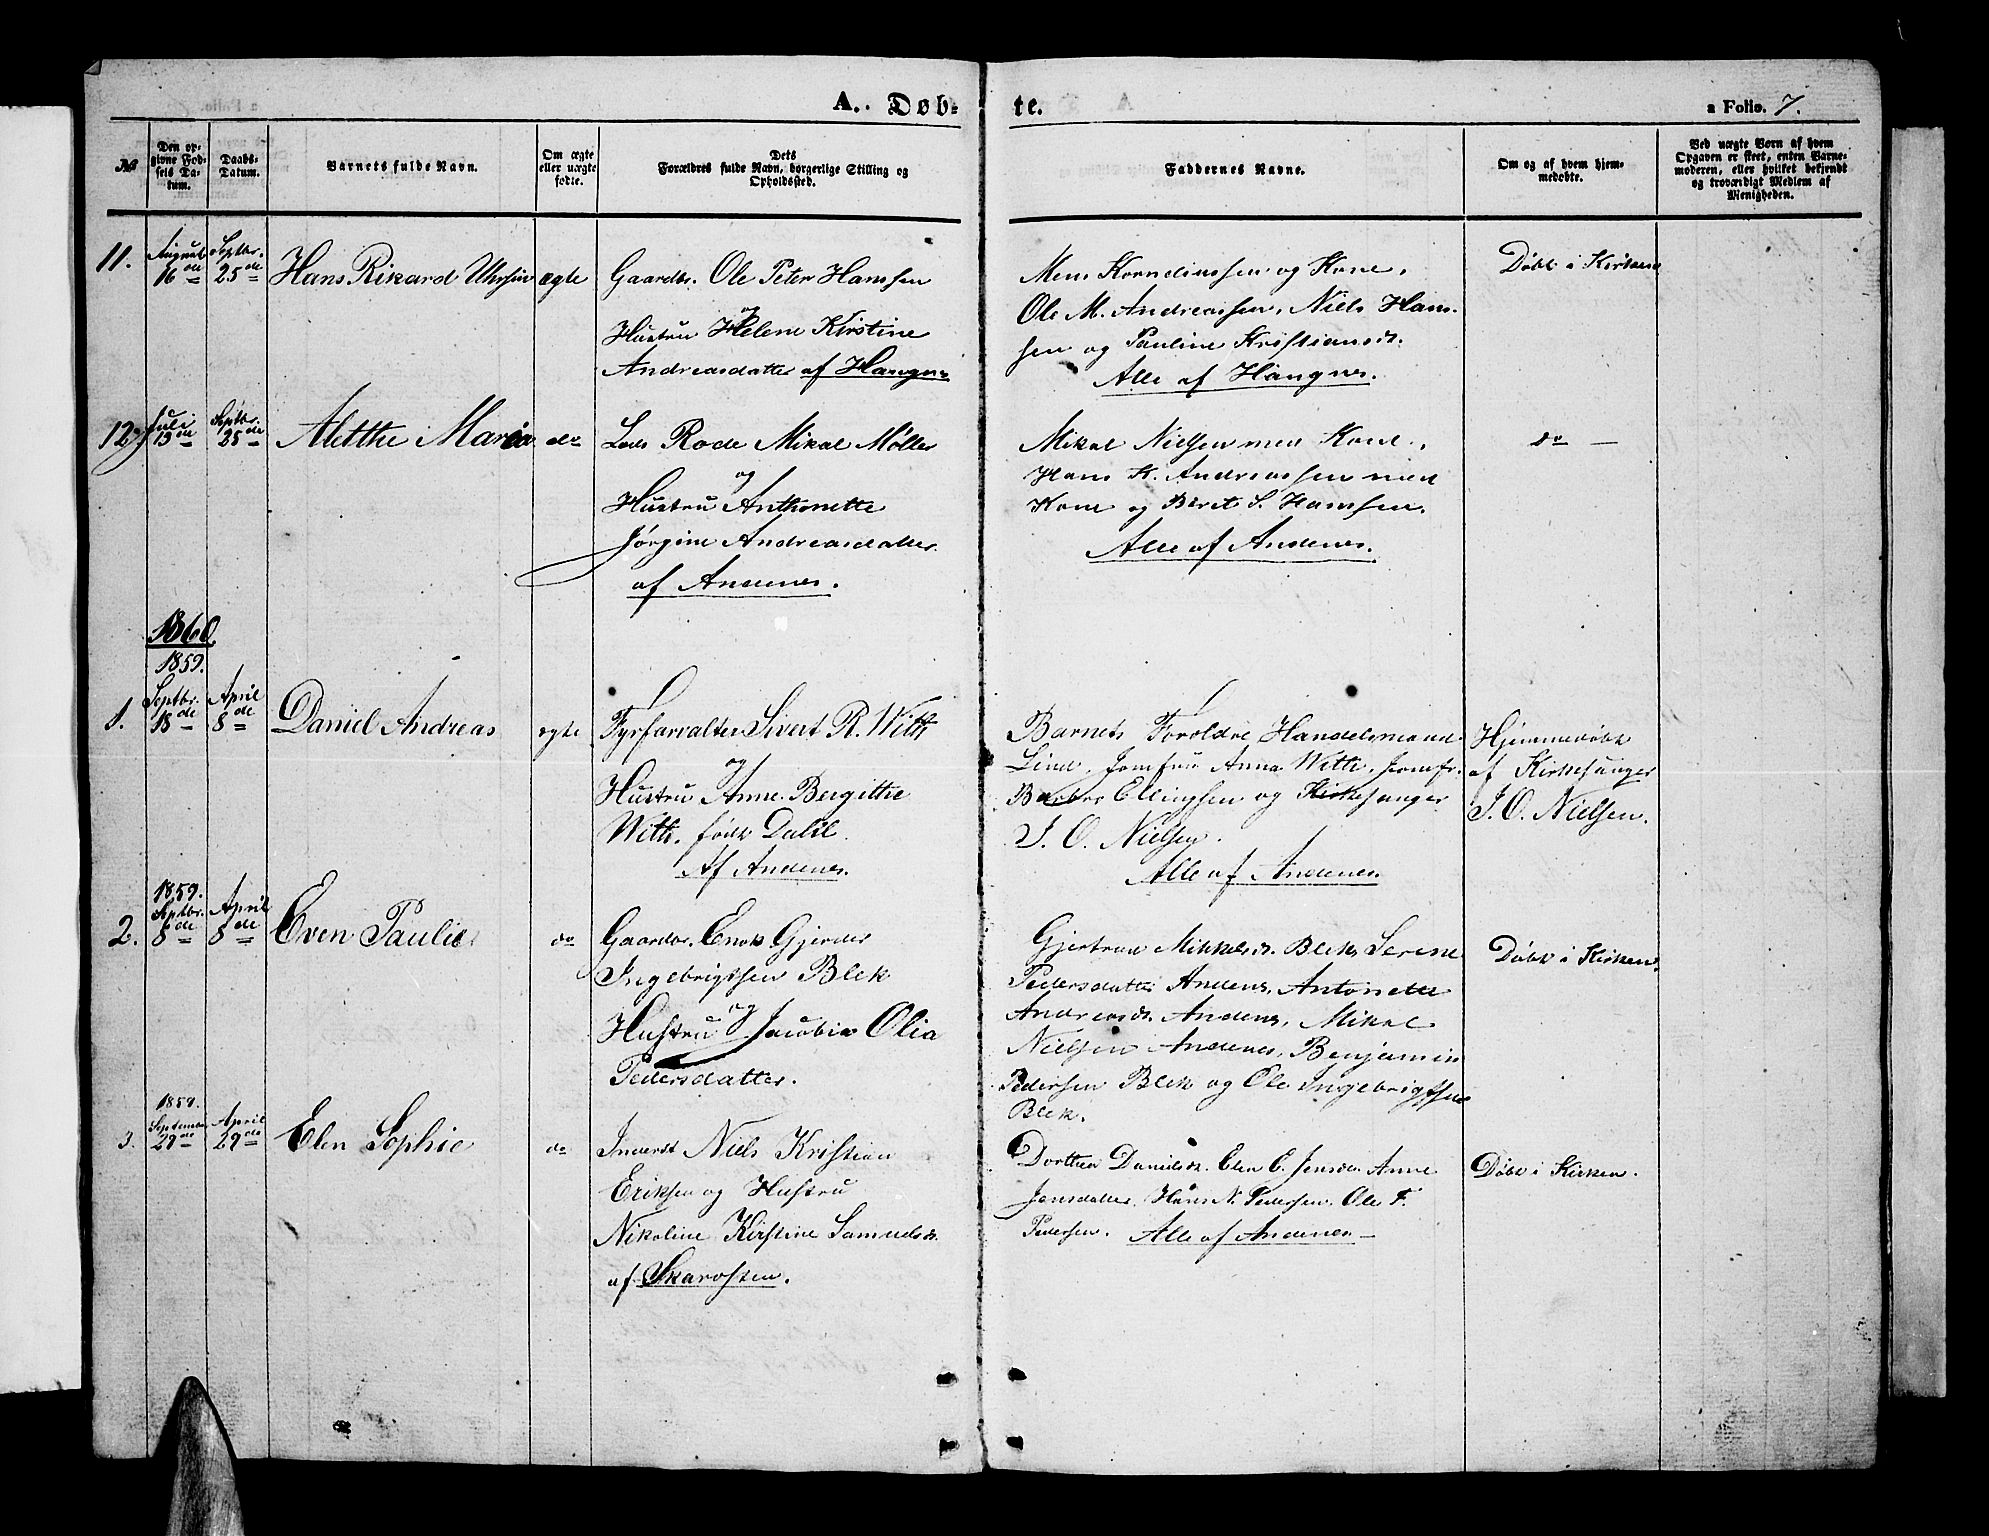 A. Døb-
te.
a Folio. 7.
№
Den op-
givne Fød-
sels Da-
tum.
Daabs-
Datum.
Barnets fulde Navn.
Om ægte
eller uægte
fødte.
Dets
Forældres fulde Navn, borgerlige Stilling og
Opholdssted.
Faddernes Navne.
Om og af hvem hjem-
medøbt.
Ved uægte Børn af hvem
Opgaven er skeet, enten Barne-
moderen, eller hvilket bekjendt
og troværdigt Medlem af
Menigheden.
11.
August
16de
Septbr.
25de
Hans Rikard
ægte
Gaardbr. Ole Peter Hanssen
og
Hustru Helene Kirstine
Andreasdatter af Haugnes
Mons Korneliussen og Kone,
Ole M. Andreassen, Niels Hans-
sen og Pauline Kristiansd.
Alle af Haugnes.
Døbt i Kirken
12
Juli
Septbr.
25de
Aletthe Maria
do
Lods Rode Mikal Møller
og
Hustru Anthonette
Jørgine Andreasdatter
af Andenes.
Mikal Nielsen med Kone,
Hans K. Andreassen med
Kone og Berit S. Hanssen.
Alle af Andenes.
do —
1860
1859.
1.
Septbr.
18de
April
8de
Daniel Andreas
egte
Fyrforvalter Sivert R. With
og
Hustru Anne Bergitthe
With, født Dahl.
Af Andenes.
Barnets Foreldre Handelsmand
Lind, Jomfru Anna With, Jomfr.
Barbro Ellingsen og Kirkesanger
J. O. Nielsen.
Alle af Andenes.
Hjemmedøbt
af Kirkesanger
J. O. Nielsen.
1859.
2.
Septbr.
8de
April
8de
Even Paulie
do
Gaardbr. Enok Gjerder
Ingebrigtsen Blek
og
Hustru Jacobia Olia
Pedersdatter.
Gjertrud Mikkelsd. Blek, Serene
Pedersdatter Andenes, Antonette
Andreasd. Andenes, Mikal
Nielsen Andenes, Benjamin
Pedersen Blek og Ole Ingebrigtsen
Blek.
Døbt i Kirken.
1859.
3.
September
29de
April
29de
Elen Sophie
do
Inderst Niels Kristian
Eriksen og Hustru
Nikoline Kirstine Samuelsd.
af Skarosten.
Dorthea Danielsd. Elen C. Jensd. Anne
Jonsdatter, Hans N. Pedersen. Ole F.
Pedersen. Alle af Andenes —
Døbt i Kirken.